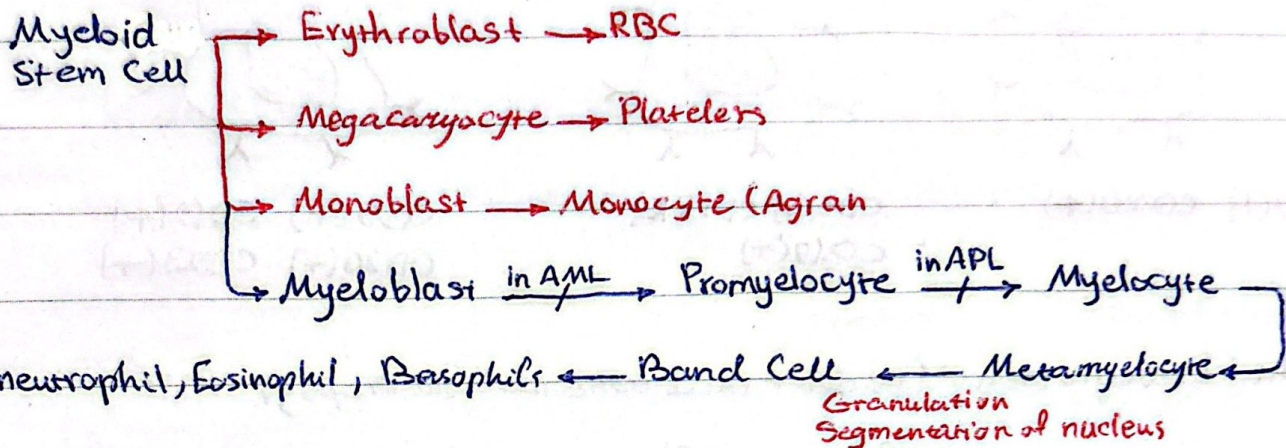 Myeloid Stem Cell → Erythroblast → RBC
→ Megacaryocyte → Platelers
→ Monoblast → Monocyte (Agran
→ Myeloblast in AML → Promyelocyte in APL → Myelocyte
neutrophil, Eosinophil, Basophils ← Band Cell ← Metamyelocyte
Granulation
Segmentation of nucleus